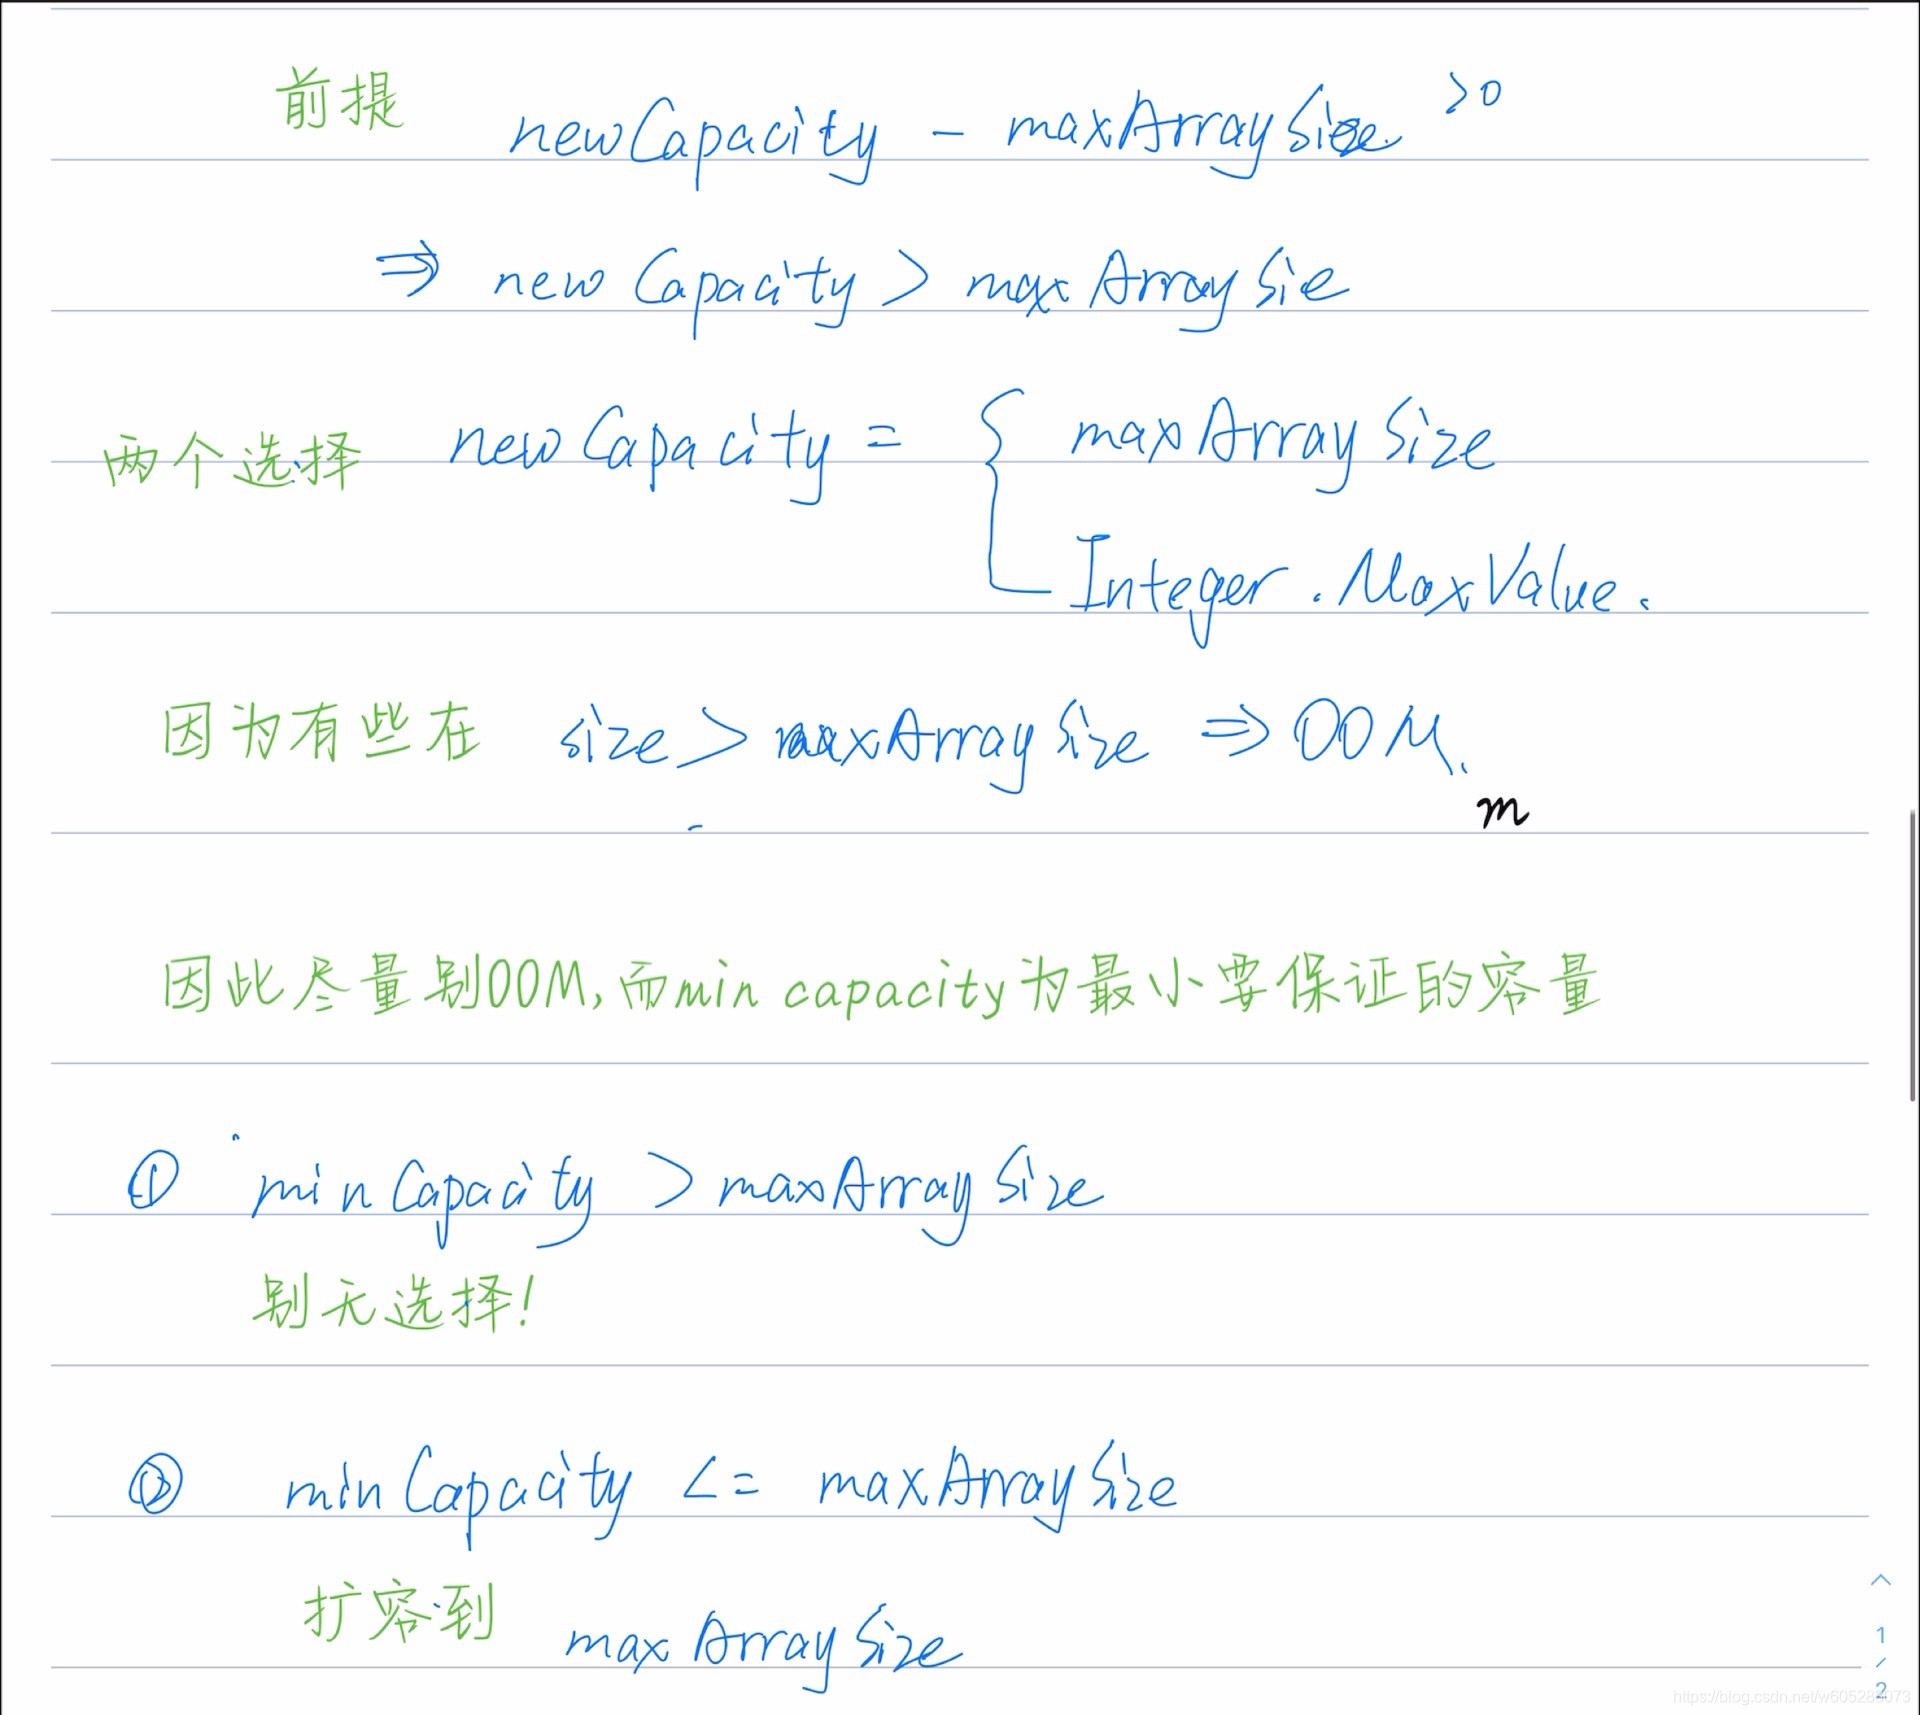 前提 newCapacity - maxArraySize >0
⇒ newCapacity > maxArraySie
两个选择 newCapacity = { maxArraySize
Integer.MaxValue.
因为有些在 size > maxArraySize ⇒ OOM.
m
因此尽量别OOM,而min capacity为最小要保证的容量
① minCapacity > maxArraySize
别无选择!
② minCapacity <= maxArraySize
扩容到 maxArraySize
1
/
2